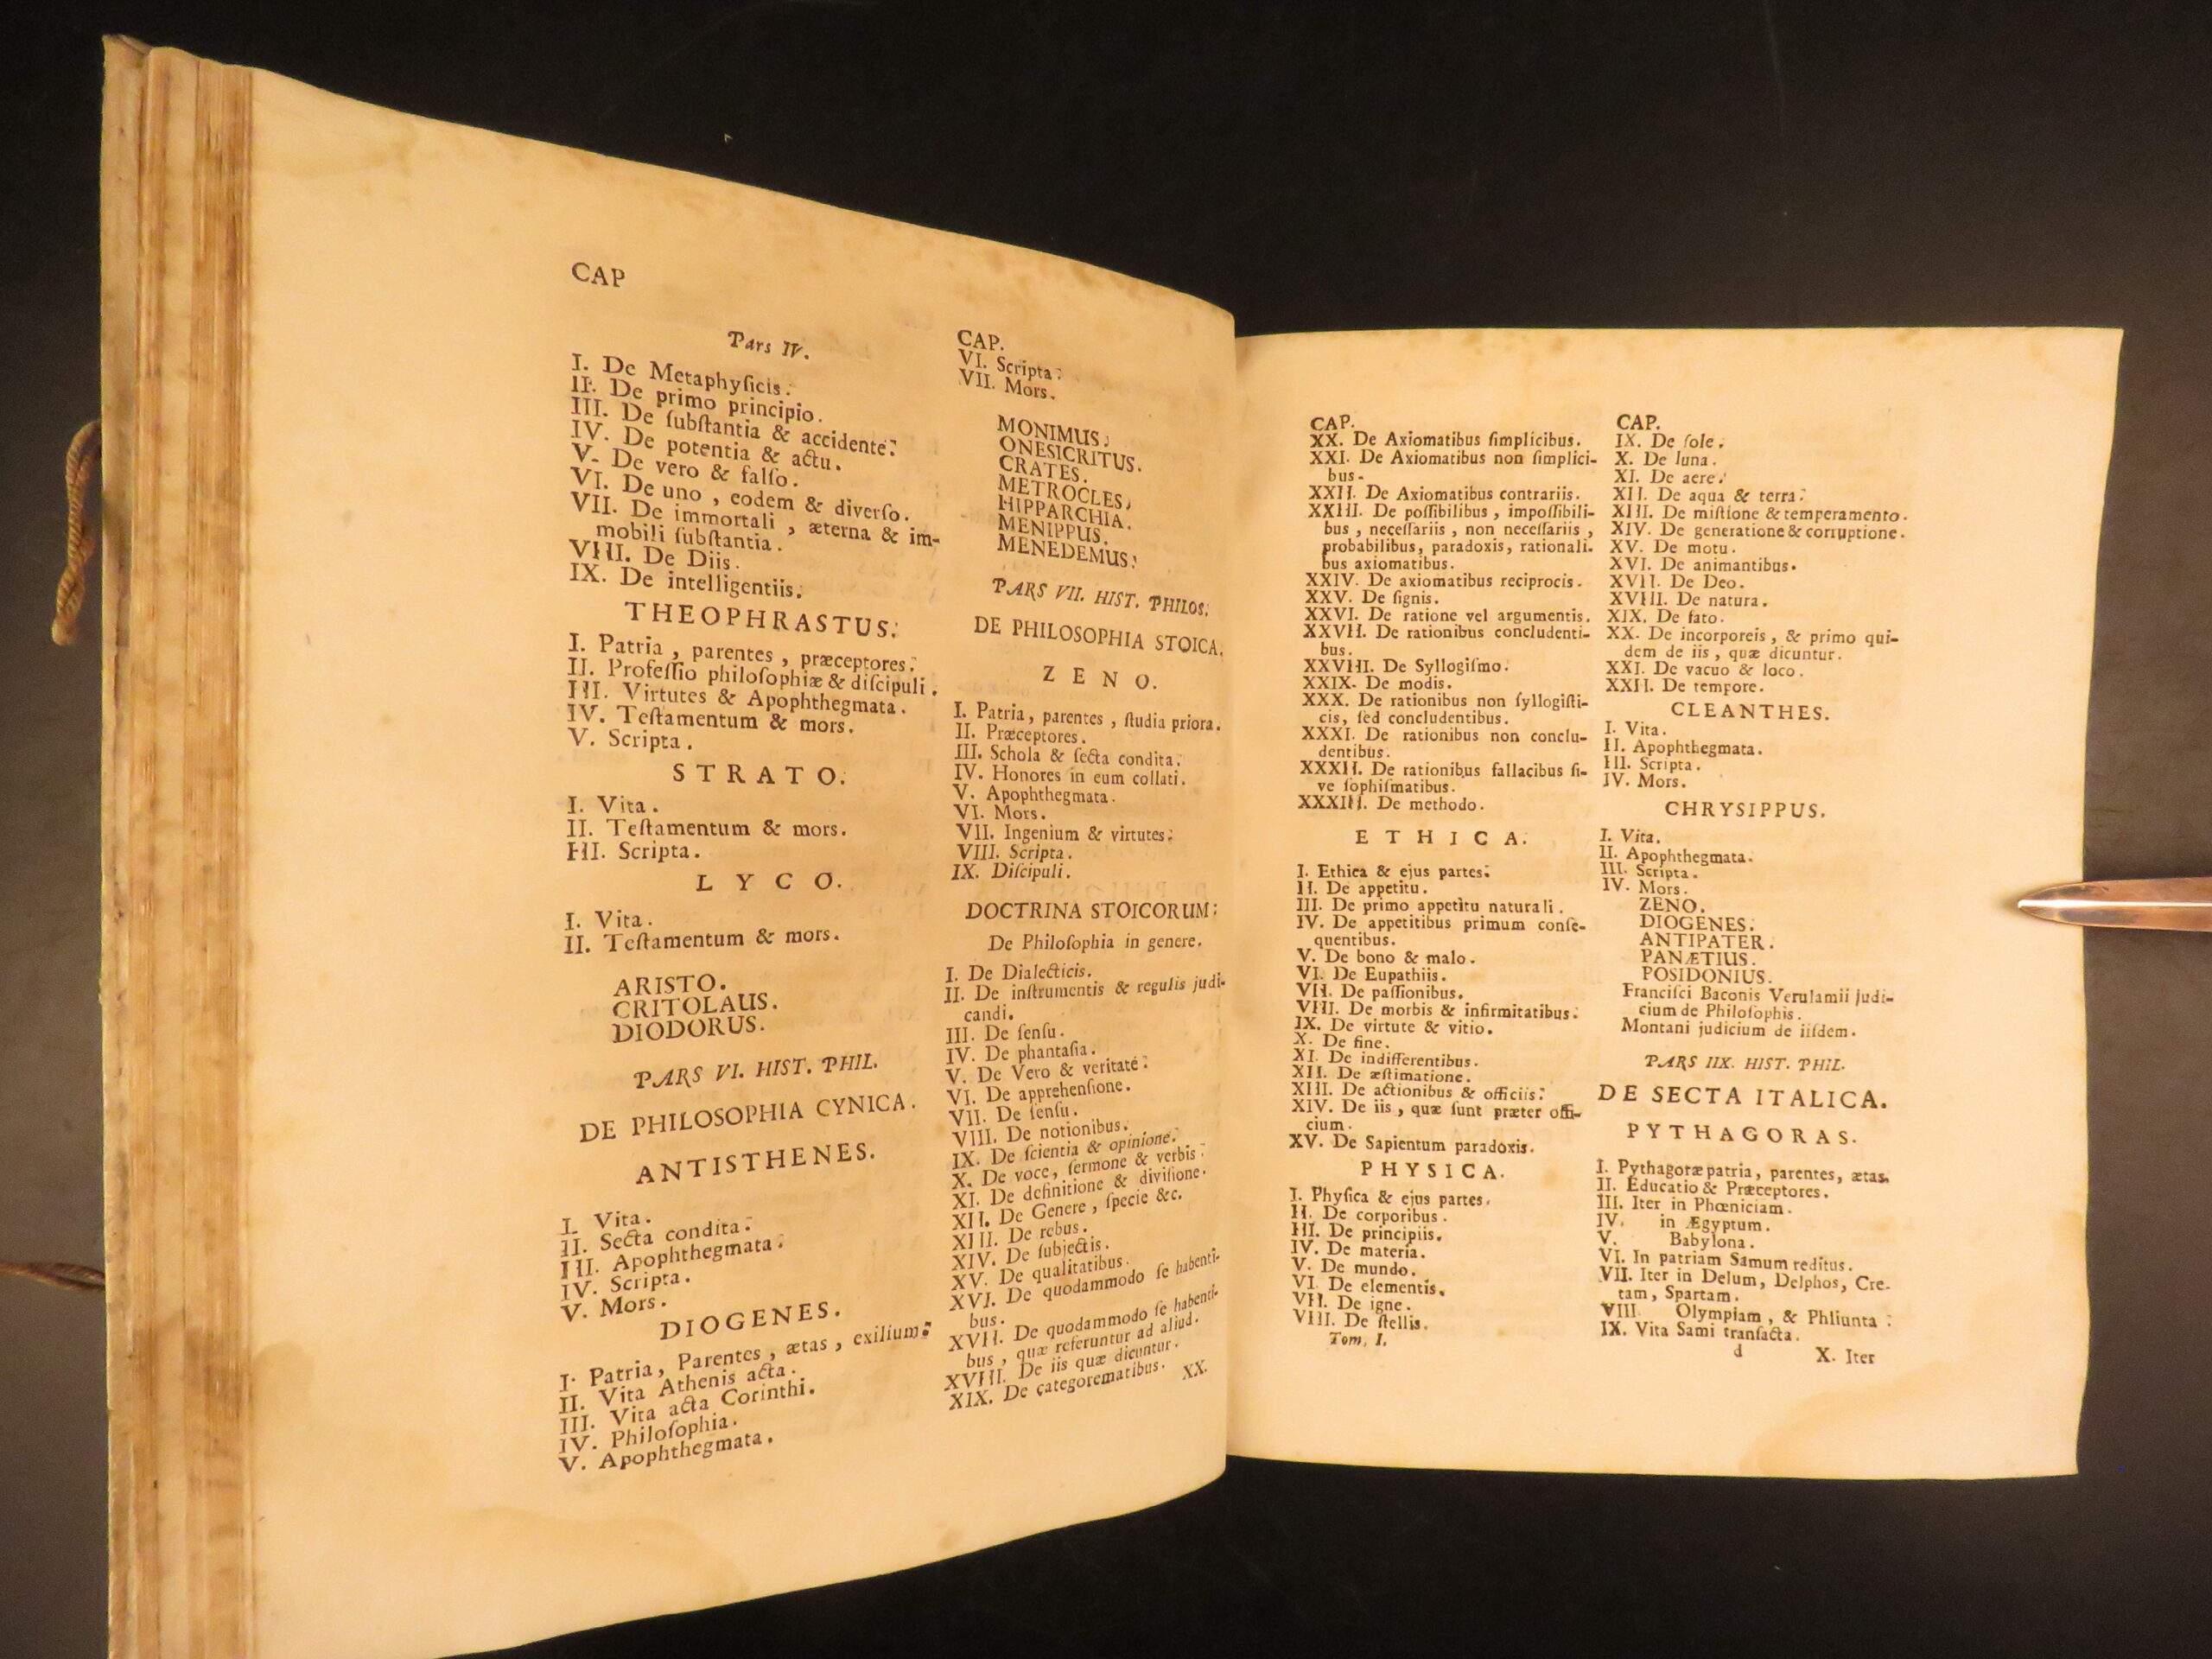 CAP
Pars IV.
I. De Metaphyſicis.
II. De primo principio.
III. De ſubſtantia & accidente.
IV. De potentia & actu.
V. De vero & falſo.
VI. De uno , eodem & diverſo.
VII. De immortali , æterna & im-
mobili ſubſtantia.
VIII. De Diis.
IX. De intelligentiis.
THEOPHRASTUS.
I. Patria , parentes , præceptores.
II. Profeſſio philoſophiæ & diſcipuli.
III. Virtutes & Apophthegmata.
IV. Teſtamentum & mors.
V. Scripta.
STRATO.
I. Vita.
II. Teſtamentum & mors.
III. Scripta.
LYCO.
I. Vita.
II. Teſtamentum & mors.
ARISTO.
CRITOLAUS.
DIODORUS.
PARS VI. HIST. PHIL.
DE PHILOSOPHIA CYNICA.
ANTISTHENES.
I. Vita.
II. Secta condita.
III. Apophthegmata.
IV. Scripta.
V. Mors.
DIOGENES.
I. Patria, Parentes , ætas , exilium.
II. Vita Athenis acta.
III. Vita acta Corinthi.
IV. Philoſophia.
V. Apophthegmata.
CAP.
VI. Scripta.
VII. Mors.
MONIMUS.
ONESICRITUS.
CRATES.
METROCLES,
HIPPARCHIA.
MENIPPUS.
MENEDEMUS.
PARS VII. HIST. PHILOS.
DE PHILOSOPHIA STOICA.
ZENO.
I. Patria, parentes , ſtudia priora.
II. Præceptores.
III. Schola & ſecta condita.
IV. Honores in eum collati.
V. Apophthegmata.
VI. Mors.
VII. Ingenium & virtutes.
VIII. Scripta.
IX. Diſcipuli.
DOCTRINA STOICORUM:
De Philoſophia in genere.
I. De Dialecticis.
II. De inſtrumentis & regulis judi-
candi.
III. De ſenſu.
IV. De phantaſia.
V. De Vero & veritate.
VI. De apprehenſione.
VII. De ſenſu.
VIII. De notionibus.
IX. De ſcientia & opinione.
X. De voce, ſermone & verbis.
XI. De definitione & diviſione.
XII. De Genere , ſpecie &c.
XIII. De rebus.
XIV. De ſubjectis.
XV. De qualitatibus.
XVI. De quodammodo ſe habenti-
bus.
XVII. De quodammodo ſe habenti-
bus , quæ referuntur ad aliud.
XVIII. De iis quæ dicuntur.
XIX. De categorematibus.
XX.
CAP.
XX. De Axiomatibus ſimplicibus.
XXI. De Axiomatibus non ſimplici-
bus.
XXII. De Axiomatibus contrariis.
XXIII. De poſſibilibus , impoſſibili-
bus , neceſſariis , non neceſſariis ,
probabilibus, paradoxis, rationali-
bus axiomatibus.
XXIV. De axiomatibus reciprocis.
XXV. De ſignis.
XXVI. De ratione vel argumentis.
XXVII. De rationibus concludenti-
bus.
XXVIII. De Syllogiſmo.
XXIX. De modis.
XXX. De rationibus non ſyllogiſti-
cis, ſed concludentibus.
XXXI. De rationibus non conclu-
dentibus.
XXXII. De rationibus fallacibus ſi-
ve ſophiſmatibus.
XXXIII. De methodo.
ETHICA.
I. Ethica & ejus partes.
II. De appetitu.
III. De primo appetitu naturali.
IV. De appetitibus primum conſe-
quentibus.
V. De bono & malo.
VI. De Eupathiis.
VII. De paſſionibus.
VIII. De morbis & infirmitatibus.
IX. De virtute & vitio.
X. De fine.
XI. De indifferentibus.
XII. De æſtimatione.
XIII. De actionibus & officiis.
XIV. De iis, quæ ſunt præter offi-
cium.
XV. De Sapientum paradoxis.
PHYSICA.
I. Phyſica & ejus partes.
II. De corporibus.
III. De principiis.
IV. De materia.
V. De mundo.
VI. De elementis.
VII. De igne.
VIII. De ſtellis.
Tom, I.
CAP.
IX. De ſole.
X. De luna.
XI. De aere.
XII. De aqua & terra.
XIII. De miſtione & temperamento.
XIV. De generatione & corruptione.
XV. De motu.
XVI. De animantibus.
XVII. De Deo.
XVIII. De natura.
XIX. De fato.
XX. De incorporeis , & primo qui-
dem de iis, quæ dicuntur.
XXI. De vacuo & loco.
XXII. De tempore.
CLEANTHES.
I. Vita.
II. Apophthegmata.
III. Scripta.
IV. Mors.
CHRYSIPPUS.
I. Vita.
II. Apophthegmata.
III. Scripta.
IV. Mors.
ZENO.
DIOGENES.
ANTIPATER.
PANÆTIUS.
POSIDONIUS.
Franciſci Baconis Verulamii judi-
cium de Philoſophis.
Montani judicium de iiſdem.
PARS IIX. HIST. PHIL.
DE SECTA ITALICA.
PYTHAGORAS.
I. Pythagoræ patria, parentes, ætas.
II. Educatio & Præceptores.
III. Iter in Phœniciam.
IV. in Ægyptum.
V. Babylona.
VI. In patriam Samum reditus.
VII. Iter in Delum, Delphos, Cre-
tam, Spartam.
VIII. Olympiam, & Phliunta:
IX. Vita Sami tranſacta.
d
X. Iter